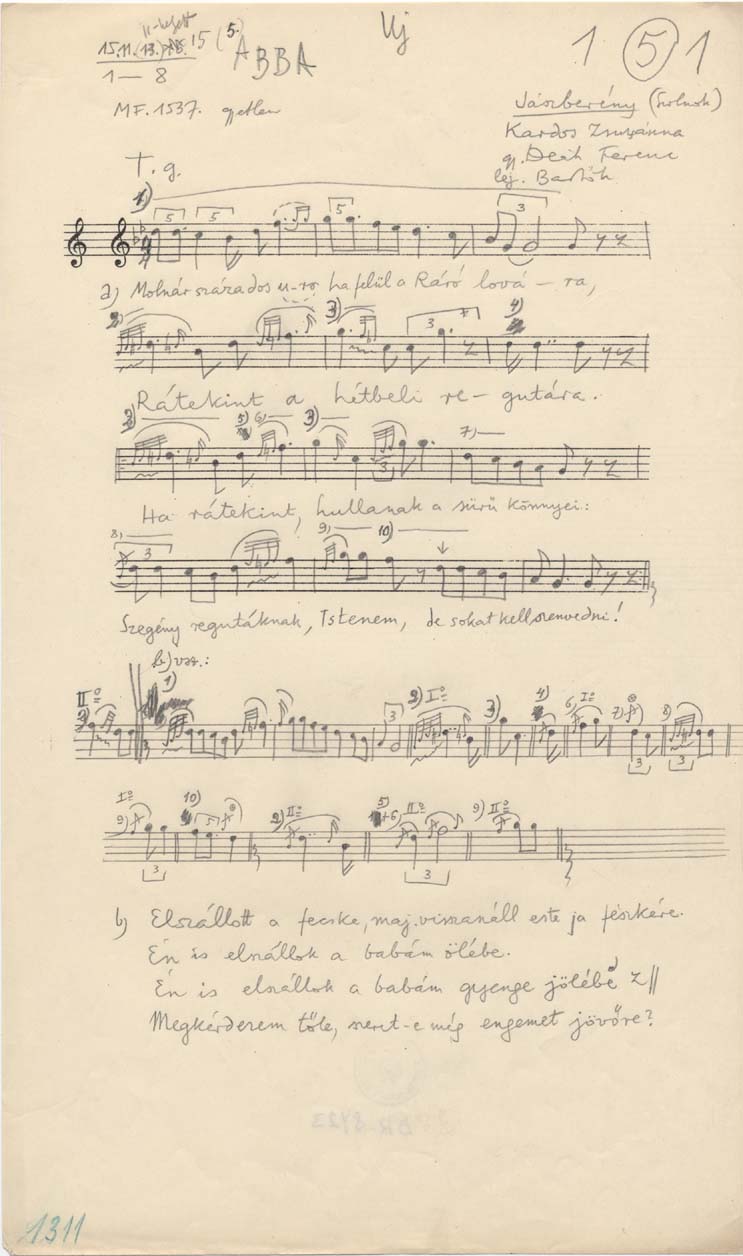 15.11. (13.) 15 (5.
ABBA
Uj
1 5 1
1 — 8
MF. 1537.
Jászberény (Szolnok)
Kardos Zsuzsánna
gy. Deák Ferenc
lej. Bartók
T. g.
1)
5 5 5 3
a) Molnár százados u-ro, ha felül a Ráró lová – ra,
2) 3) 3 4)
Rátekint a hétbeli re – gutára.
2) 5) 6) 3) 3 7)
Ha rátekint, hullanak a sürü könnyei:
8) 3 9) 10)
Szegény regutáknak, Istenem, de sokat kell szenvedni!
b) vsz.:
II° 1) 3 2) I° 3) 4) 6) I° 7) 3 8) 3
I° 9) 3 10) 5 2) II° 5) +6) II° 3 9) II°
b) Elszállott a fecske, maj visszanáll este ja fészkére.
Én is elszállok a babám ölébe.
Én is elszállok a babám gyenge jölébe
Megkérdezem tőle, szeret-e még engemet jövőre?
1311